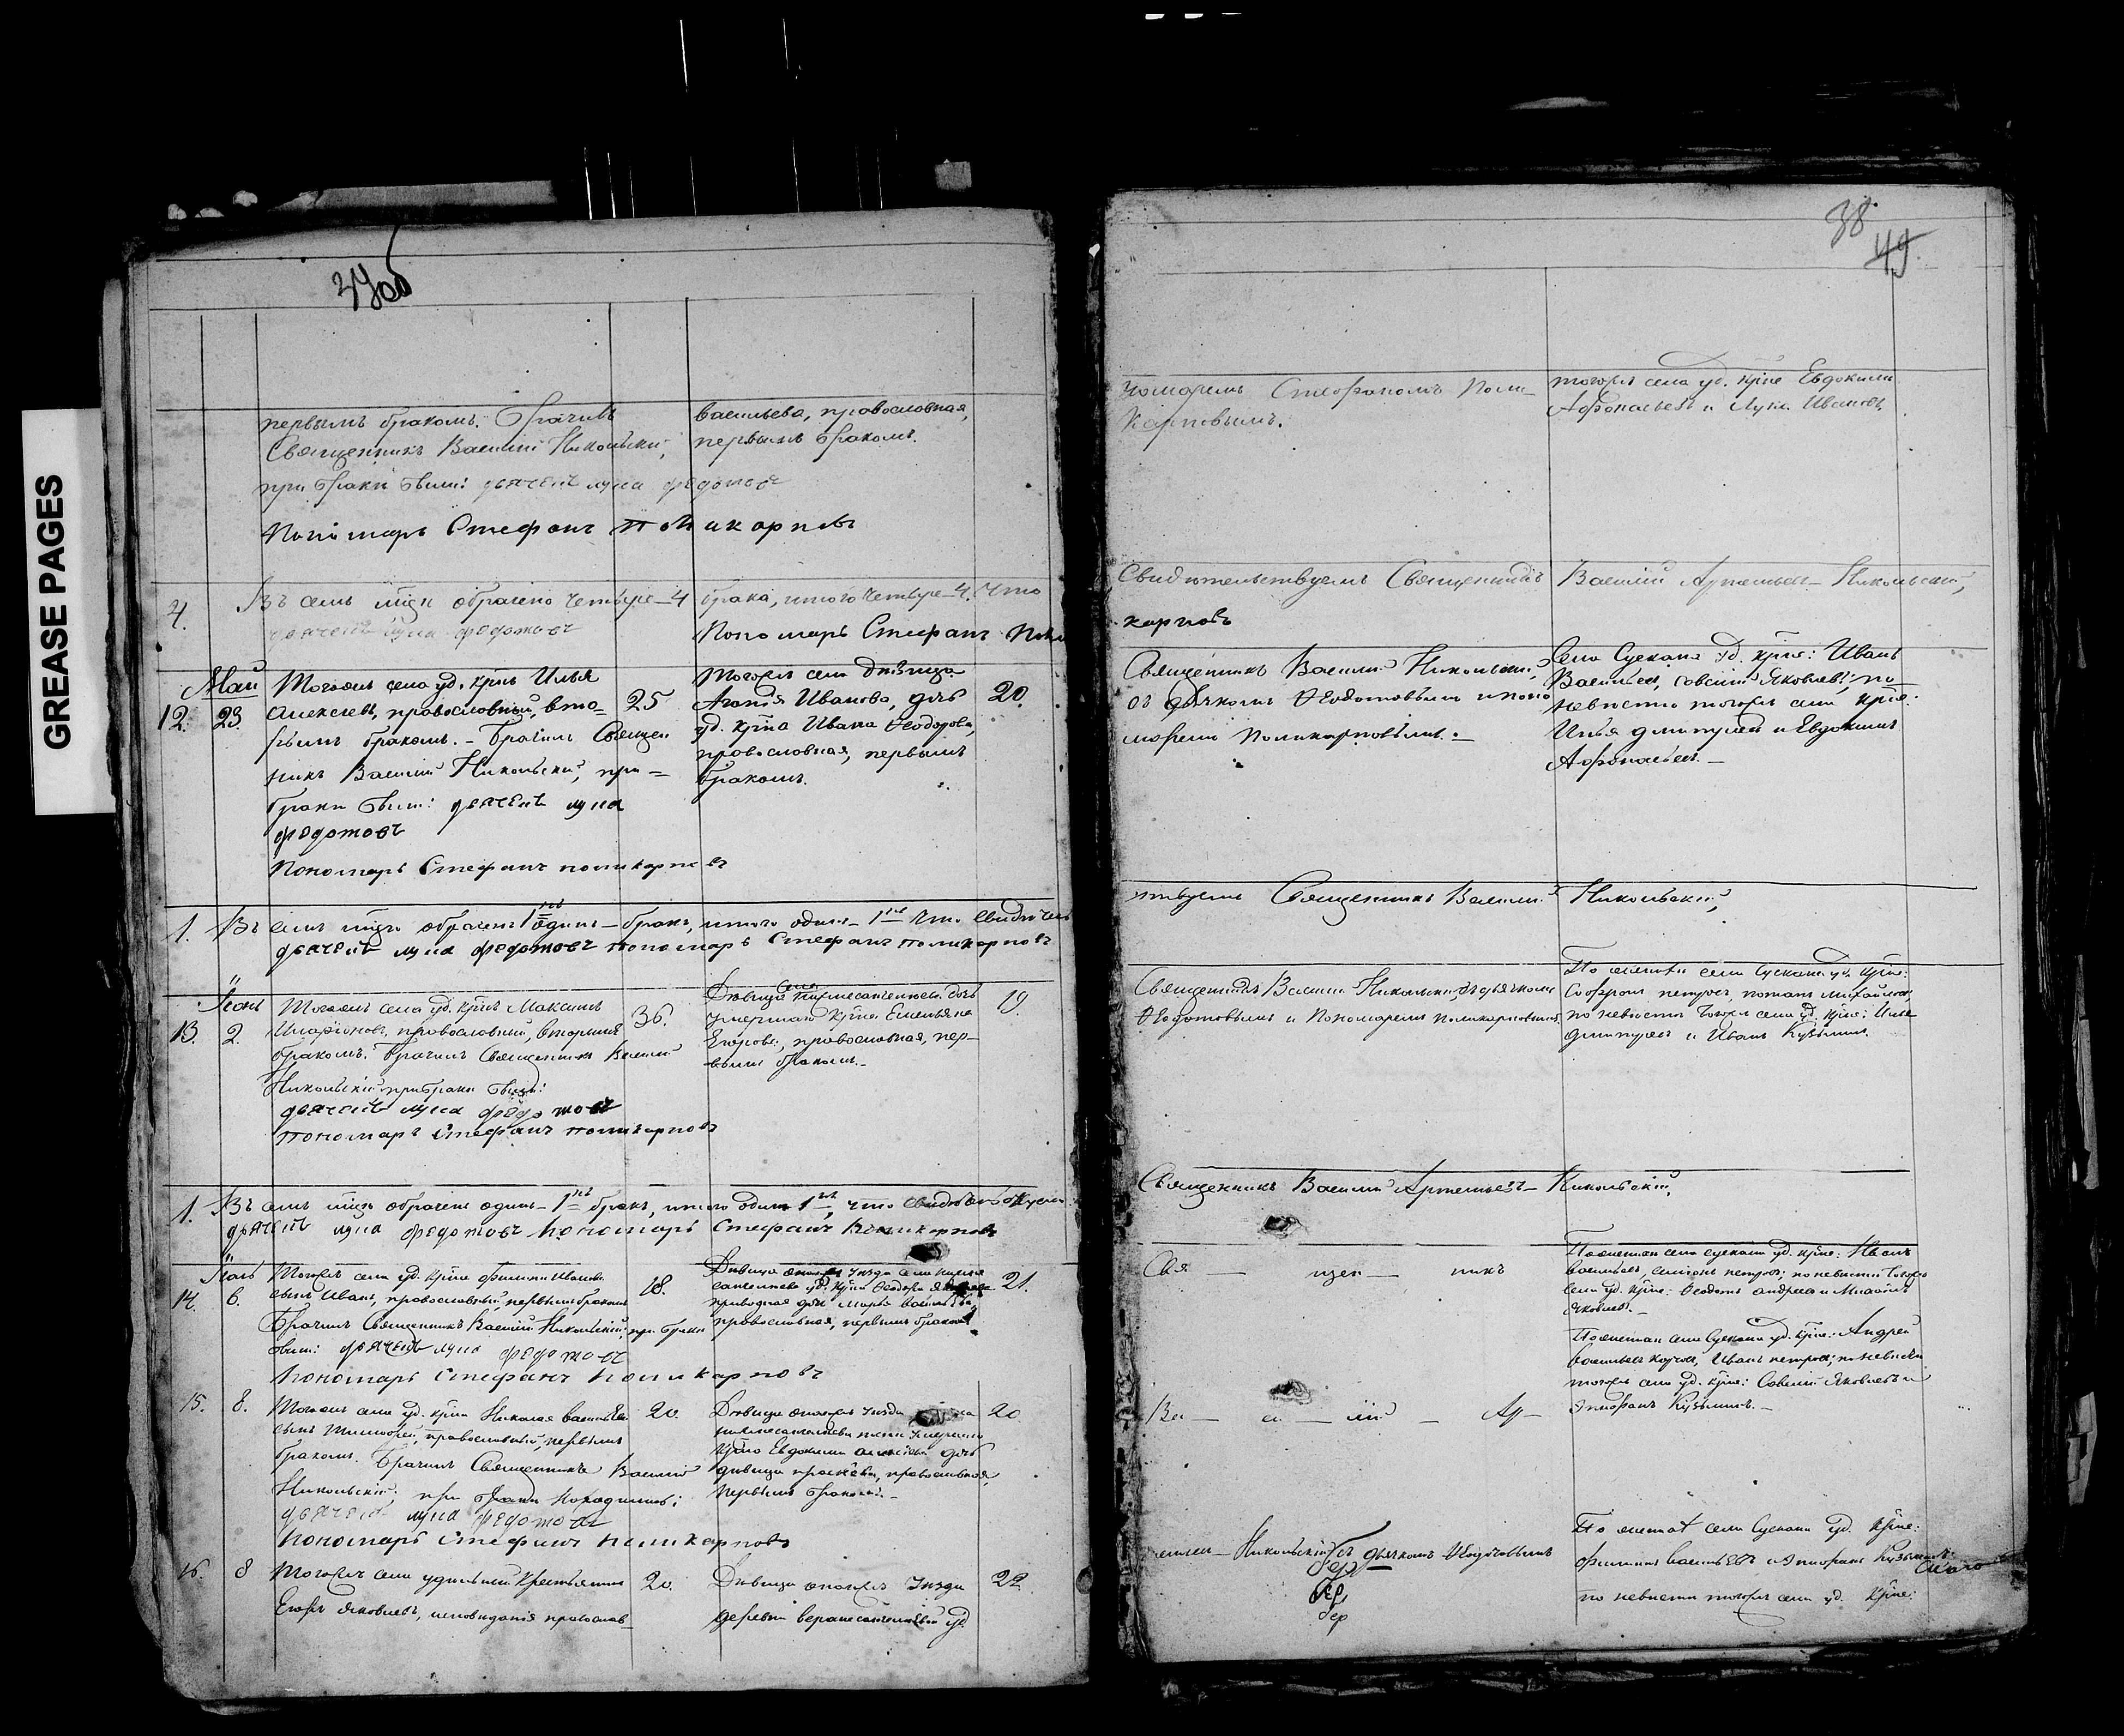 GREASE PAGES
37об
первымъ бракомъ. Брачилъ
Священникъ Василій Никольскій,
при бракѣ были: дьячекъ лука федотовъ
Пономарь Стефанъ поликарповъ
васильева, православная,
первымъ бракомъ.
4. Въ семъ м҃цѣ обрачено четыре - 4 брака, итого четыре - 4. Что
дьячекъ лука федотовъ
Пономарь Стефанъ Поли
Май
12. 23.
Тогожъ села уд. кр҃нъ Илья
Алексѣевъ, православный, вто=
рымъ бракомъ. - Брачилъ Священ
никъ Василій Никольскій, при =
бракѣ были: дьячекъ лука
федотовъ
Пономарь Стефанъ поликарповъ
25
Тогожъ села дѣвица
Агафія Иванова, дочь
уд. кр҃на Ивана Ѳеодорова,
православная, первымъ
бракомъ.
20.
1. Въ семъ м҃цѣ обраченъ 1 одинъ - бракъ, итого одинъ - 1 Что свидѣтель
дьячекъ лука федотовъ пономарь Стефанъ поликарповъ
Іюнь
13. 2.
Тогожъ села уд. кр҃нъ Максимъ
Иларіоновъ, православный, вторымъ
бракомъ. Брачилъ Священникъ Василій
Никольскій при бракѣ были:
дьячекъ лука федотовъ
пономарь Стефанъ поликарповъ
36.
Дѣвица села дочь
умершаго кр҃на Емельяна
Егорова, православная, пер-
вымъ бракомъ.
19.
1. Въ семъ м҃цѣ обраченъ одинъ - 1 бракъ, итого одинъ 1, что свидѣтельствуемъ
дьячекъ лука федотовъ Пономарь Стефанъ Поликарповъ
Іюль
14. 6.
Тогожъ села уд. кр҃на Филиппа Иванова
сынъ Иванъ, православный, первымъ бракомъ
Брачилъ Священникъ Василій Никольскій, при бракѣ
были: дьячекъ лука федотовъ
Пономарь Стефанъ Поликарповъ
18.
Дѣвица уѣзда села
уд. кр҃на Ѳеодора
приводная дочь Марья Васильева,
православная, первымъ бракомъ.
21.
15. 8.
Тогожъ села уд. кр҃на Николая Васильева
сынъ Тимофей, православный, первымъ
бракомъ. Брачилъ Священникъ Василій
Никольскій, при бракѣ находились:
дьячекъ лука федотовъ
Пономарь Стефанъ Поликарповъ
20.
Дѣвица уѣзда
умершаго
кр҃на Евдокима Алексѣева дочь
дѣвица, православная,
первымъ бракомъ. -
20.
16. 8
Тогожъ села удѣльный крестьянинъ
Егоръ Яковлевъ, исповѣданія православ-
20.
Дѣвица уѣзда
деревни уд.
22.
38
49
номаремъ Стефаномъ Поли-
карповымъ.
тогожъ села уд. кр҃не Евдокимъ
Афонасьевъ и Лука Ивановъ,
Свидѣтельствуемъ Священникъ Василій Артемьевъ Никольскій,
карповъ
Священникъ Василій Никольскій,
съ дьячкомъ Ѳеодотовымъ и поно
маремъ Поликарповымъ. -
Села Сускана уд. кр҃не: Иванъ
Васильевъ, Савелій Яковлевъ; по
невѣстѣ тогожъ села кр҃не:
Илья Дмитріевъ и Евдокимъ
Афонасьевъ. -
ствуемъ Священникъ Василій Никольскій,
Священникъ Василій Никольскій, съ дьячкомъ
Ѳеодотовымъ и Пономаремъ Поликарповымъ.
По женихѣ села Сускана уд. кр҃не:
Софронъ Петровъ, Потапъ Михайловъ,
по невѣстѣ тогожъ села уд. кр҃не: Илья
Дмитріевъ и Иванъ Кузьминъ.
Священникъ Василій Артемьевъ - Никольскій,
Свя — щен — никъ
По женихѣ села Сускана уд. кр҃не: Иванъ
Васильевъ, Семіонъ Петровъ; по невѣстѣ тогожъ
села уд. кр҃не: Ѳеодотъ Андреевъ и Михаилъ
Яковлевъ. -
По женихѣ села Сускана уд. кр҃не: Андрей
Васильевъ, Иванъ Петровъ; по невѣстѣ
тогожъ села уд. кр҃не: Савелій Яковлевъ и
Кузьминъ. -
Ва — си — лій — Ар —
темьевъ - Никольскій съ дьячкомъ Ѳеодотовымъ
По женихѣ села Сускана уд. кр҃не:
Филиппъ Васильевъ и Кузьминъ
по невѣстѣ тогожъ села уд. кр҃не: